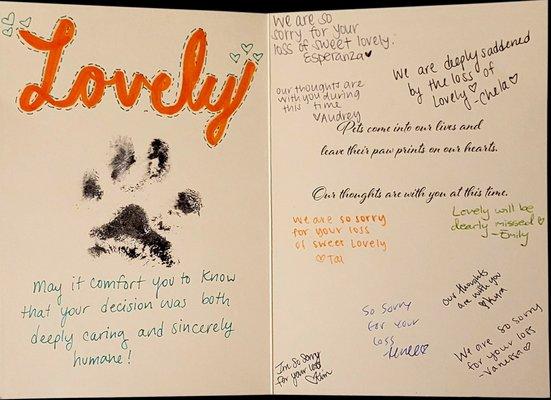 Lovely
May it comfort you to know
that your decision was both
deeply caring and sincerely
humane!
We are so
sorry for your
loss of sweet lovely.
Esperanza
We are deeply saddened
by the loss of
Lovely -Chela
our thoughts are
with you during
this time
Audrey
Pets come into our lives and
leave their paw prints on our hearts.
Our thoughts are with you at this time.
We are so sorry
for your loss
of sweet Lovely
Tai
Lovely will be
dearly missed
-Emily
our thoughts
are with you
Kyra
So sorry
for your
loss
We are so sorry
for your loss
-Vanessa
I'm so sorry
for your loss